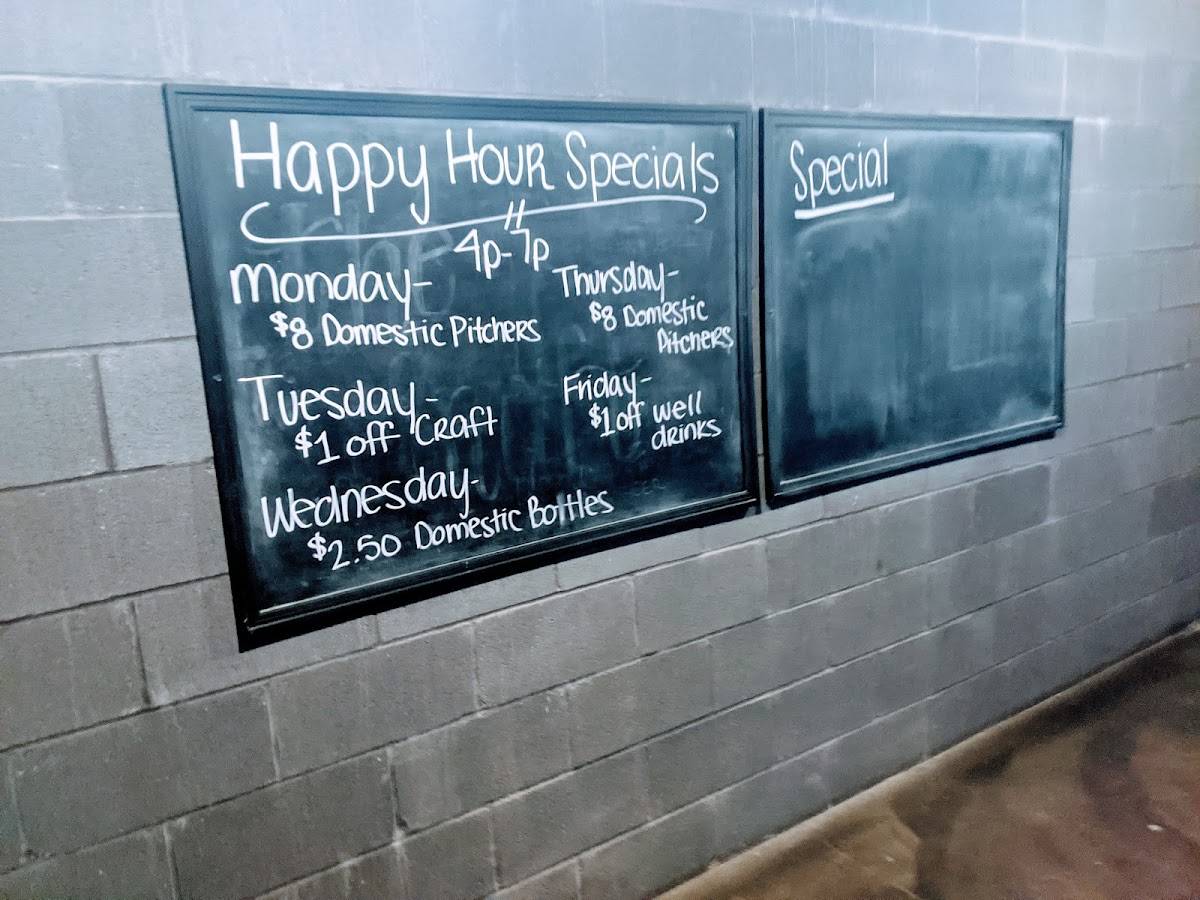 Happy Hour Specials
4p-7p
Monday-
$8 Domestic Pitchers
Tuesday-
$1 off Craft
Wednesday-
$2.50 Domestic Bottles
Thursday-
$8 Domestic
Pitchers
Friday-
$1 off well
drinks
Special